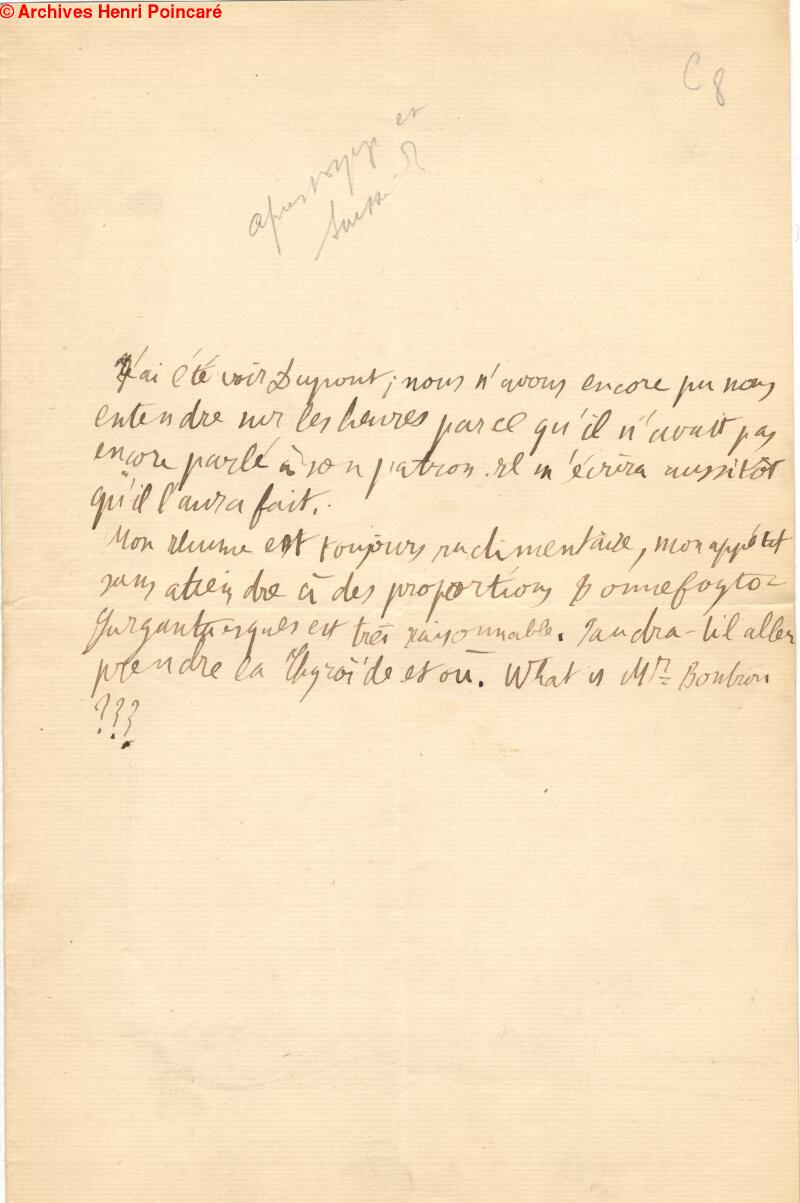 © Archives Henri Poincaré
C 8
après voyage et
J'ai été voir Dupont; nous n'avons encore pu nous
entendre sur les heures parce qu'il n'avait pas
encore parlé à son patron. Il m'écrira aussitôt
qu'il l'aura fait.
Mon rhume est toujours rudimentaire, mon appétit
sans atteindre à des proportions Bonnefoyto-
Gargantuesques est très raisonnable. Faudra-t-il aller
prendre la Thyroïde et où. What is Mr. Boutron
???